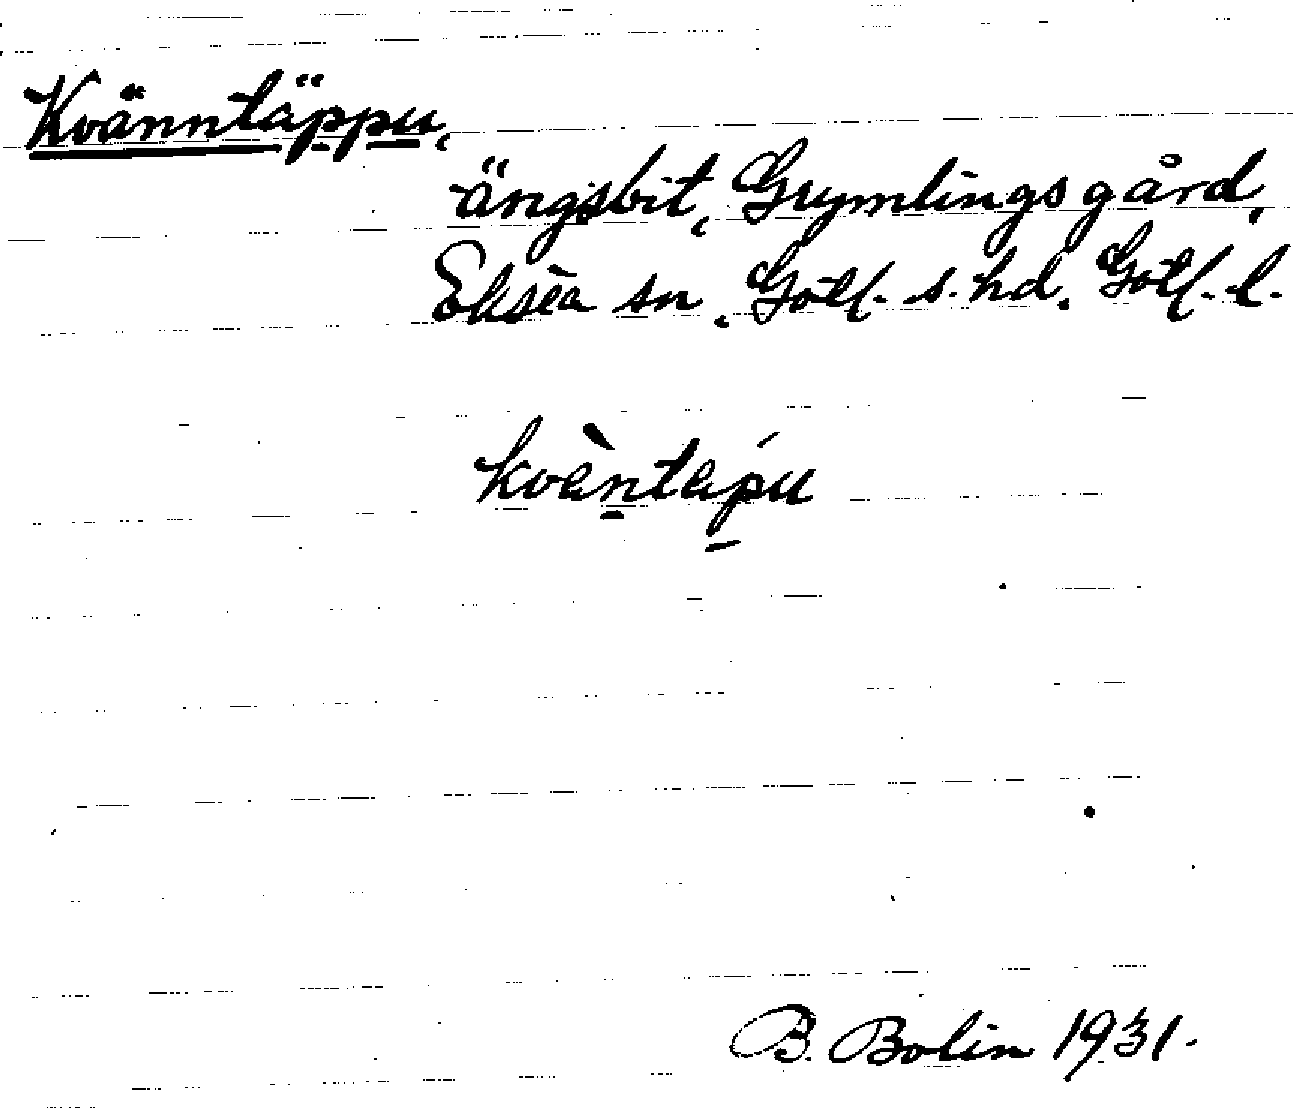 Kvänntäppu,
ängsbit, Grymlings gård,
Eksta sn, Gotl. s. hd, Gotl. l.
kvàntapu
B. Bolin 1931.